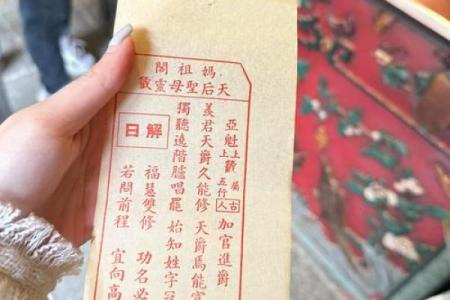 媽祖閣
天后聖母靈籤
亞魁 上上籤 屬五行 古人 加官進爵
羨君天爵久能修 天爵焉能
獨聽遶階臚唱罷 始知姓字
解曰
福慧雙修 功名必
若問前程 宜向高